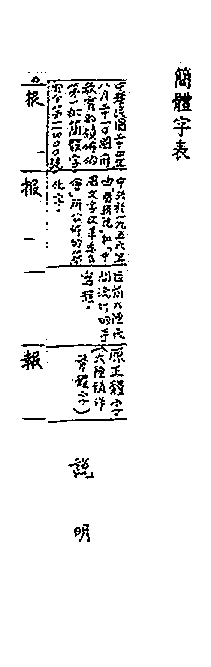 簡體字表
中華民國二十四年
八月二十一日國府
教育部頒佈的
第一批簡體字
中共於一九五六年
由國務院和「中
國文字改革委員
會」所公佈的簡
化字
目前大陸民
間流行的手
寫體。
原正體字
(大陸稱作
繁體字)
說明
报
報